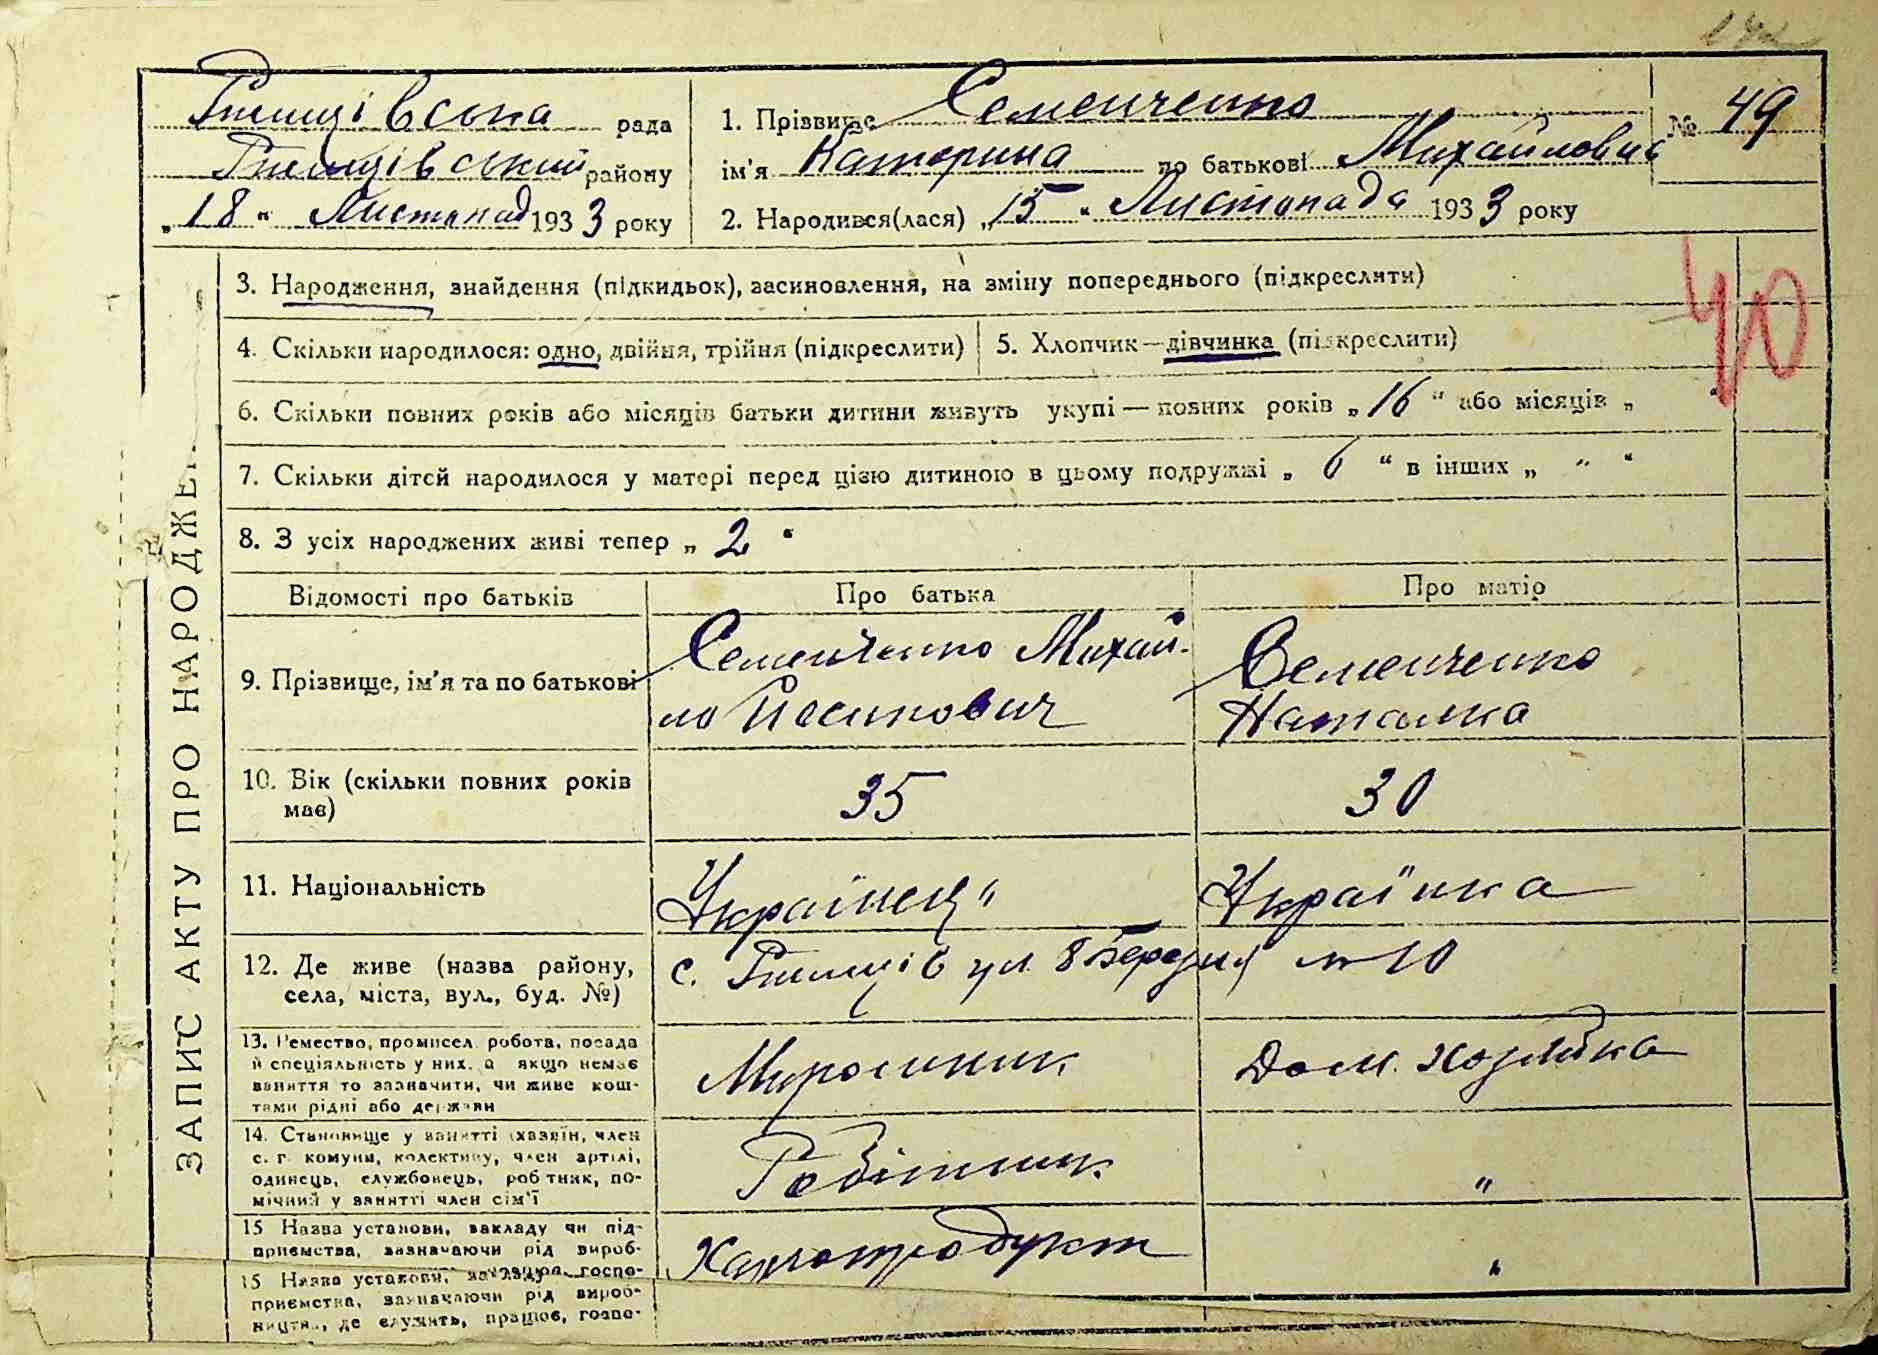 Ржищівська рада
Ржищівський району
„18“ Листопад 1933 року
1. Прізвище Семенченко
ім'я Катерина по батькові Михайловна
2. Народився(лася) „15“ Листопада 1933 року
№ 49
3. Народження, знайдення (підкидьок), засиновлення, на зміну попереднього (підкреслити)
40
4. Скільки народилося: одно, двійня, трійня (підкреслити)
5. Хлопчик—дівчинка (підкреслити)
6. Скільки повних років або місяців батьки дитини живуть укупі — повних років „16“ або місяців „
7. Скільки дітей народилося у матері перед цією дитиною в цьому подружжі „6“ в інших „ “ “
8. З усіх народжених живі тепер „2“
ЗАПИС АКТУ ПРО НАРОДЖЕН
Відомості про батьків
Про батька
Про матір
9. Прізвище, ім'я та по батькові
Семенченко Михай-
ло
Семенченко
Наталка
10. Вік (скільки повних років
має)
35
30
11. Національність
Українец
Українка
12. Де живе (назва району,
села, міста, вул., буд. №)
с. Ржищів ул. 8 Березня № 10
13. Ремество, промисел, робота, посада
й спеціяльність у них, а якщо немає
заняття то зазначити, чи живе кош-
тами рідні або держави
Мирошник
Дом. хозяйка
14. Становище у занятті (хазяїн, член
с.-г. комуни, колективу, член артілі,
одинець, службовець, робітник, по-
мічний у занятті член сім'ї
Робітник
"
15 Назва установи, закладу чи під-
приємства, зазначаючи рід вироб-
"
15 Назва установи, закладу
приємства, зазначаючи рід вироб-
ництва, де служить, працює, госпо-